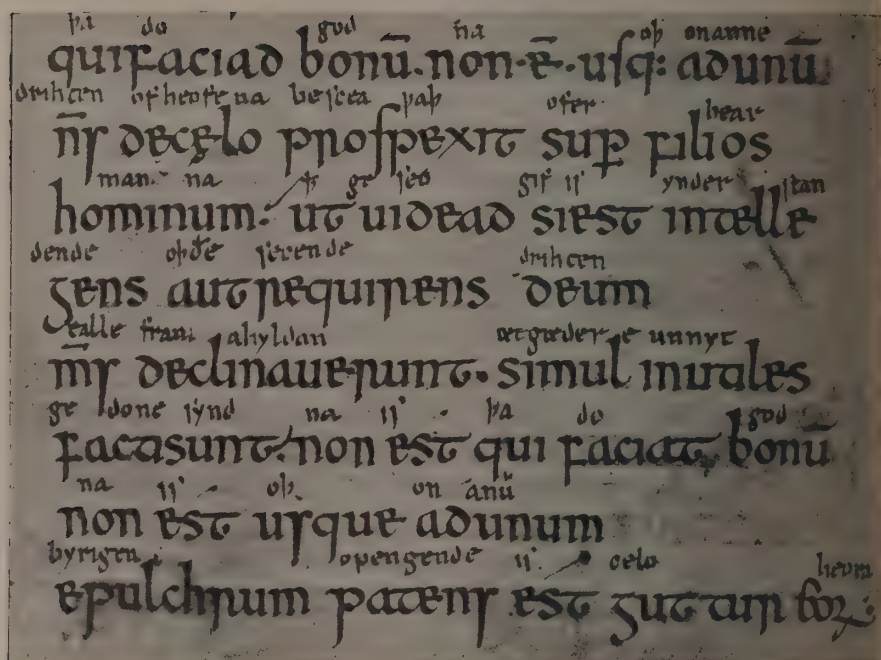 þa do god na oþ onanne
qui faciad bonū. non·ē·usq: adunū
drihten of heofe na besceа þaþ ofer bear
dns decęlo prospexit sup filios
man na þ ge seo gif is ynder stan
hominum: ut uidead siest intelle
dende oþðe secende drihten
gens aut requirens deum
ealle fram ahyldan ætgæder e unnyt
mſ declinauerunt. simul inutiles
ge done synd na is þa do god
facti sunt: non est qui faciat bonū
na is oþ on anū
non est usque adunum
byrigen opengende is celo heora
epulchrum patens est guttur eorꝝ